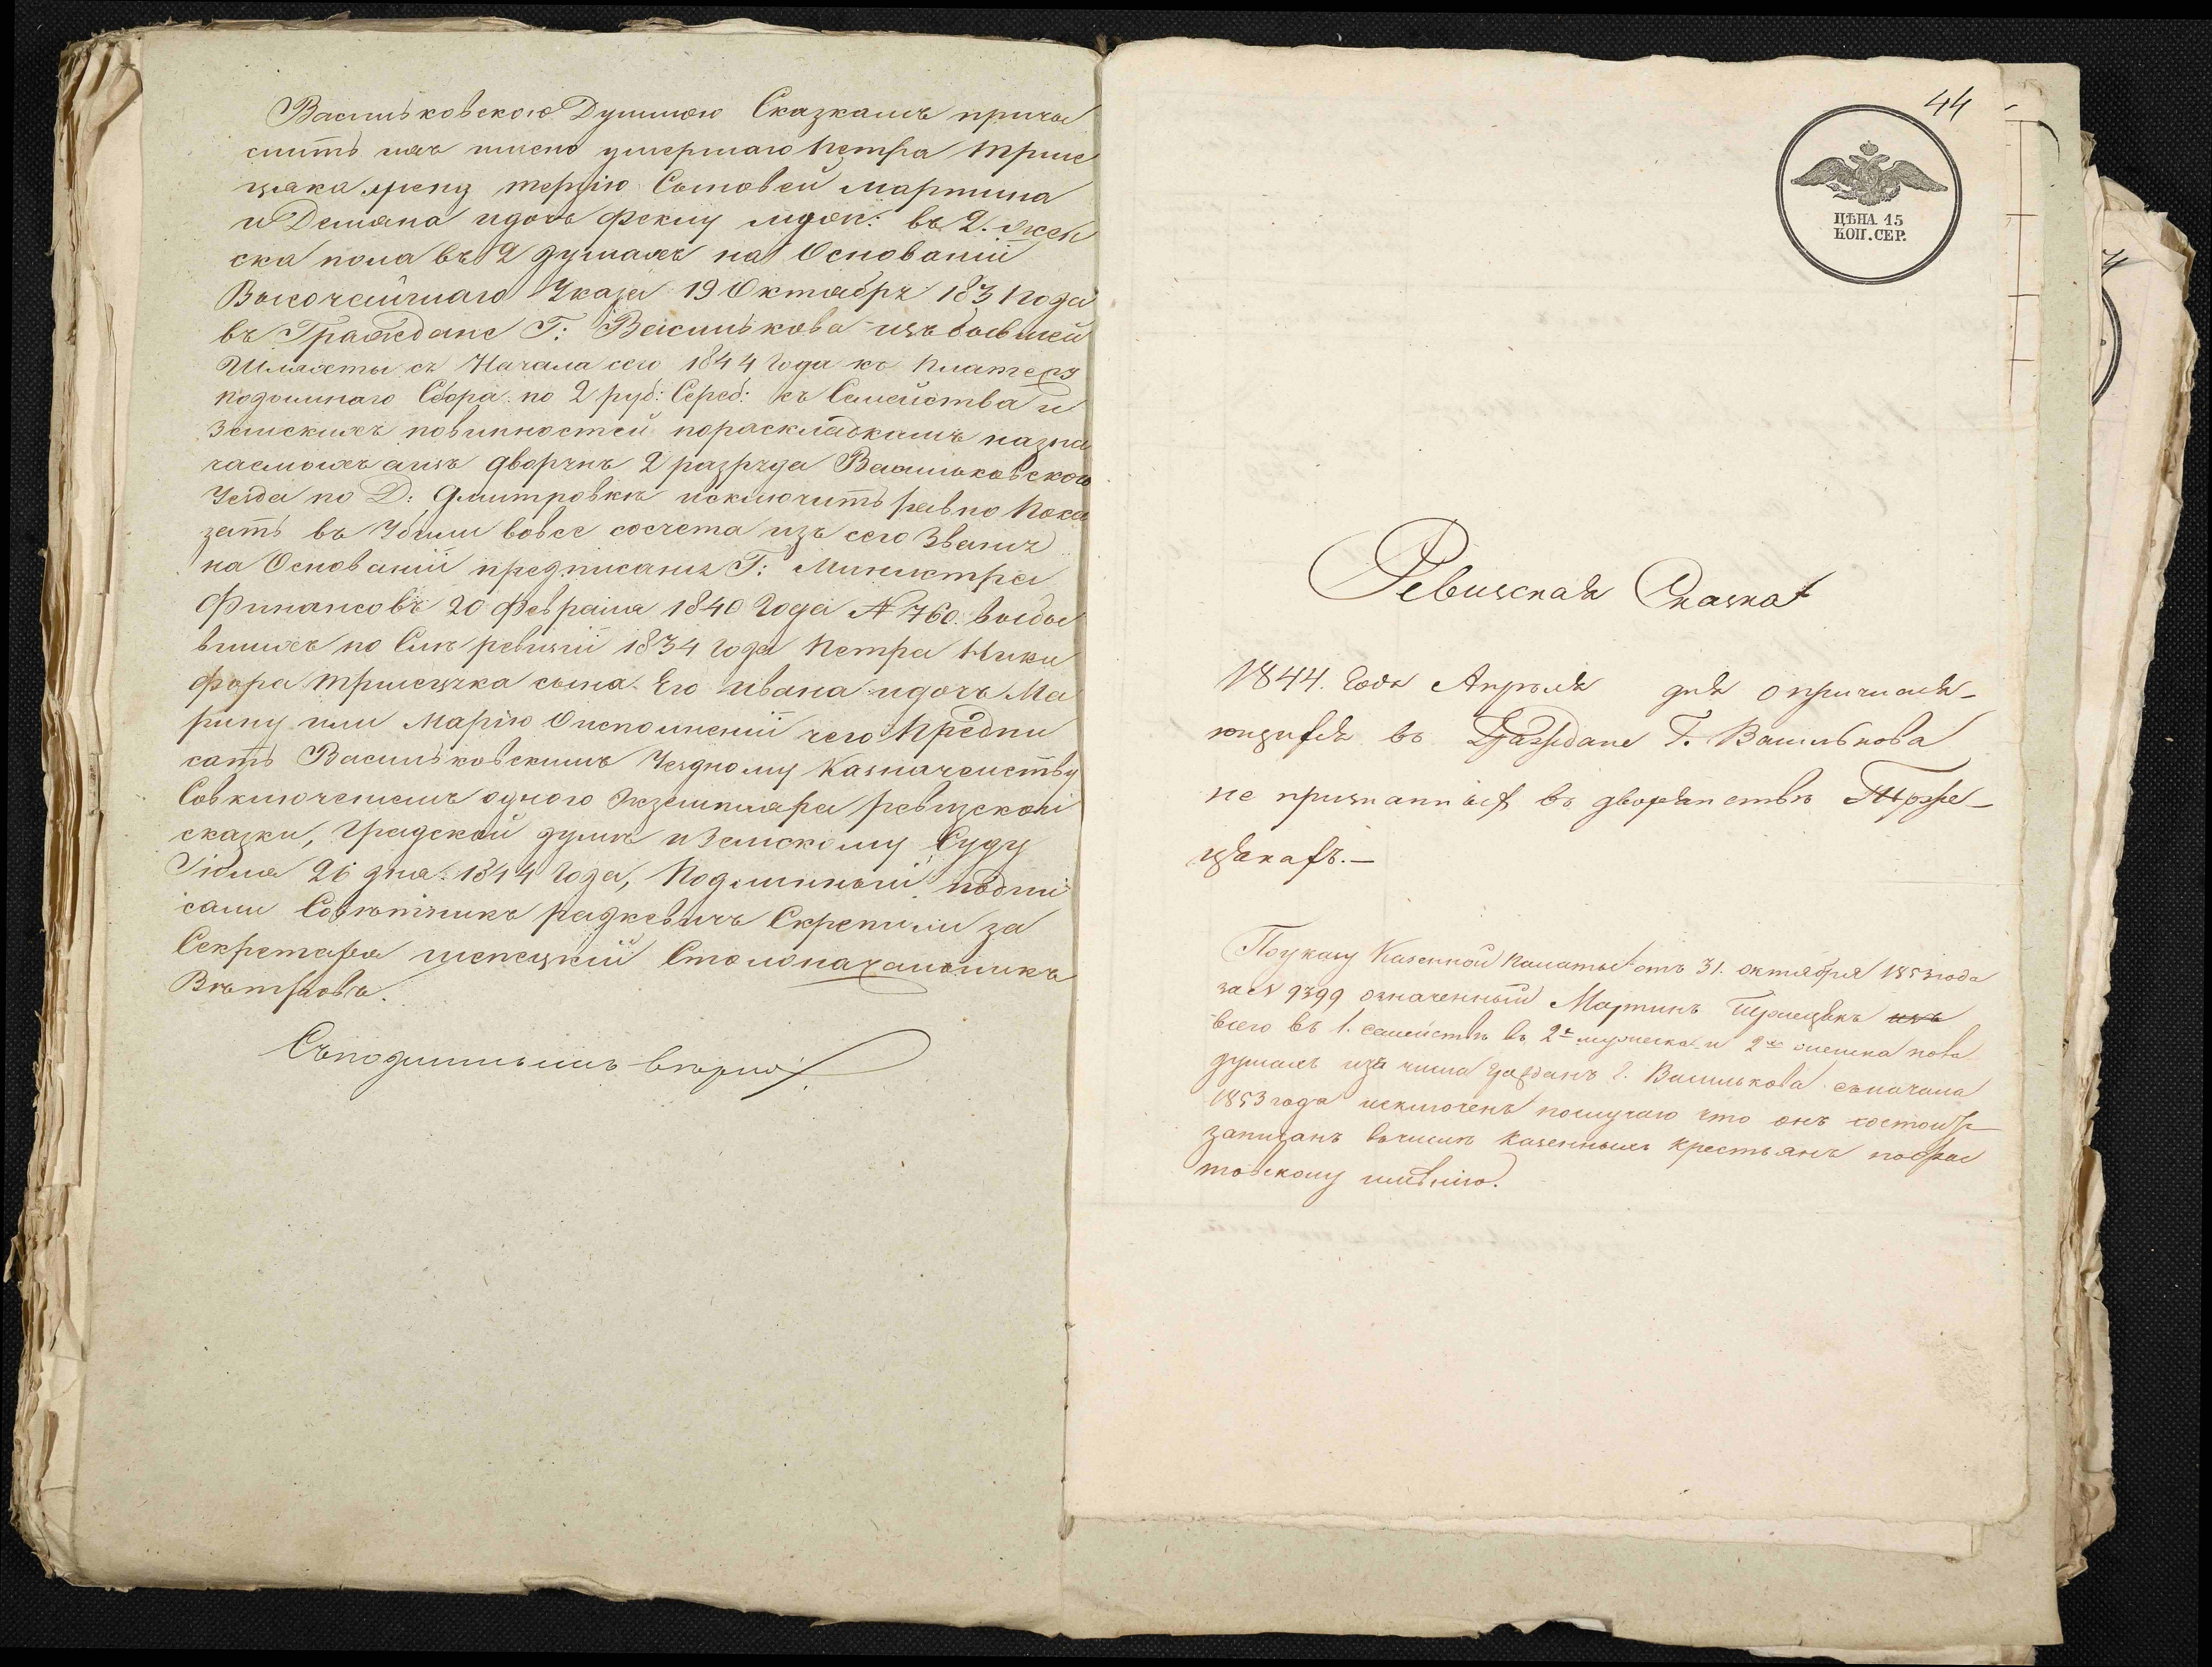 Васильковскою Думою Сказкамъ причи
слить изъ числа умершаго Петра Трже
цяка жену терзію Сыновей Мартина
и Демяна идочь Феклу муж: въ 2. жен
ска пола въ 2 душахъ на Основаніи
Высочайшаго Указа 19 Октября 1831 года
въ Граждане Г: Василькова изъ бывшей
Шляхты съ Начала сего 1844 Года къ Платежу
подымнаго Сбора по 2 руб: Сереб: съ Семейства и
Земскихъ повинностей пораскладкамъ назна
чаемыхъ а изъ дворянъ 2 разряда Васильковскаго
Уезда по Д: Дмитровкѣ исключить равно Пока
зать въ Убыли вовсе сосчета изъ сего Званія
на Основаніи предписанія Г: Министра
Финансовъ 20 Февраля 1840 Года № 760. выбы
вшихъ по Сил ревизіи 1834 года Петра Ники
фора Тржецяка сына Его Ивана идочь Ма
рину или Марію Оисполненіи чего Предпи
сать Васильковскимъ Уездному Казначейству
Совключеніемъ одного Экземпляра ревизской
сказки, Градской думѣ и Земскому Суду
Іюня 26 дня 1844 Года, Подлинный подпи
сали Совѣтникъ радкевичъ Скрепили за
Секретаря Столоначальникъ
Вѣтровъ.
Съподлиннымъ вѣрно
44
ЦѢНА 15
КОП. СЕР.
Ревизская Сказка
1844. Года Апрѣля дня опричисля-
ющихся въ Граждане Г. Василькова
не признанныхъ въ дворянствѣ Трже-
цякахъ.—
Поуказу Казенной Палаты отъ 31. октября 1853 года
за № 9399 означенный Мартинъ Тржецякъ изъ
всего въ 1. семействѣ въ 2х мужеска и 2х женска пола
душахъ изъ числа гражданъ г. Василькова съначала
1853 года исключенъ послучаю что онъ состоитъ
записанъ вчислѣ казенныхъ крестьянъ по
имѣнію.